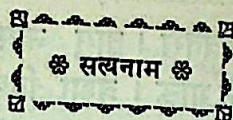 सत्यनाम